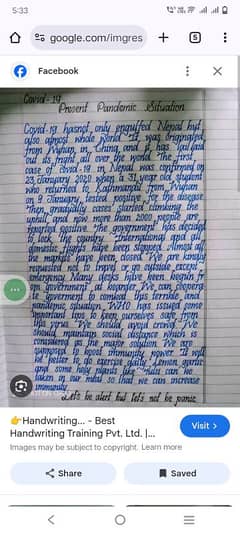 5:33
google.com/imgres
5
Facebook
Covid-19
Present Pandemic Situation
Covid-19 hasnot only engulfed Nepal but
also almost whole world. It was originated
from Wuhan in China and it has
out its fright all over the world. The first
case of covid-19 in Nepal was confirmed on
23 January 2020 when a 31 year old student
who returned to Kathmandu from Wuhan
on 9 January tested positive for the disease
Then gradually cases started climbing the
uphill and now more than 2000 people are
reported positive. The government has decided
to lock the country. International and all
domestic flights have been stopped. Almost all
the markets have been closed. We are kindly
requested not to travel or go outside except
emergency. Many desks have been
government
government to combat this terrible and
pandemic situation. WHO has issued some
important tips to keep ourselves safe from
this virus. We should avoid crowd. We
should maintain social distance which is
considered as the major solution. We are
supposed to boost immunity power. It will
be better to do
and some holy plants like
taken in our meal so that we can increase
immunity.
Let's be alert but let's not be panic.
👉Handwriting... - Best
Handwriting Training Pvt. Ltd. |...
Visit >
Images may be subject to copyright. Learn more
Share
Saved